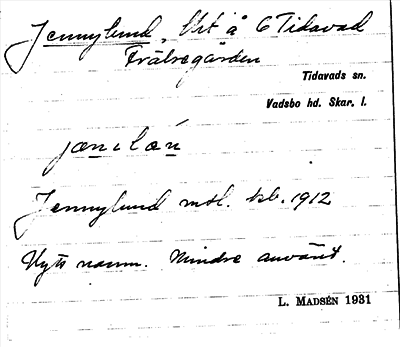 Jennylund, Ut å 6 Tidavad
Frälsegården
Tidavads sn.
Vadsbo hd. Skar. l.
jænɩlǽn
Jennylund mtl. kb. 1912
Nytt namn. Mindre använt.
L. MADSÉN 1931